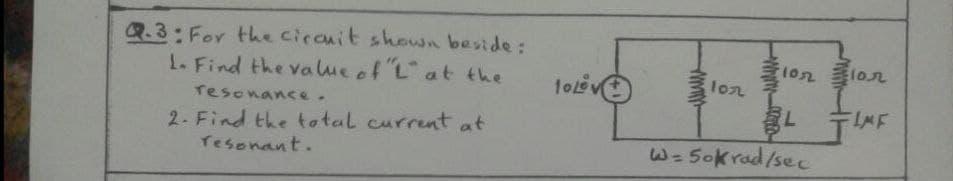 Q.3: For the circuit shown beside:
1. Find the value of "L" at the
resonance.
2. Find the total current at
resonant.
10∠0° V
+
-
10Ω
10Ω
L
10Ω
1MF
W = 50K rad/sec